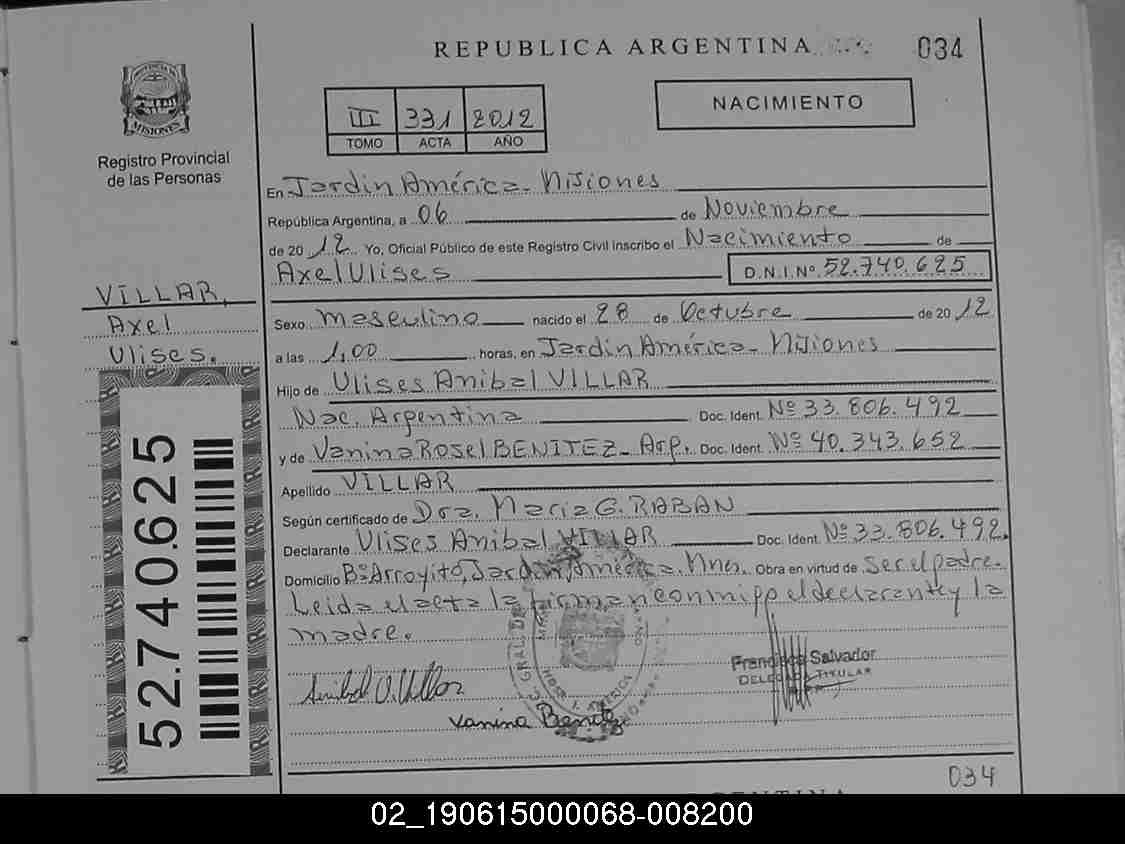 REPUBLICA ARGENTINA
034
MISIONES
Registro Provincial
de las Personas
III 331 2012
TOMO ACTA AÑO
NACIMIENTO
En Jardin América - Misiones
República Argentina, a 06 de Noviembre
de 2012 Yo, Oficial Público de este Registro Civil inscribo el Nacimiento de
Axel Ulises D.N.I.Nº 52.740.625
VILLAR,
Axel
Ulises.
52.740.625
Sexo masculino nacido el 28 de Octubre de 2012
a las 1,00 horas, en Jardin América - Misiones
Hijo de Ulises Anibal VILLAR
Nac. Argentina Doc. Ident. Nº 33.806.492
y de Vanina Rosel BENITEZ - Arg. Doc. Ident. Nº 40.343.652
Apellido VILLAR
Según certificado de Dra. Maria G. RABAN
Declarante Ulises Anibal VILLAR Doc. Ident. Nº 33.806.492.
Domicilio Bº Arroyito, Jardin América. Mnes. Obra en virtud de ser el padre.
Leida el acta la firman conmigo el declarante y la
madre.
Francisco Salvador
DELEGADA TITULAR
Vanina Benitez
034
02_190615000068-008200